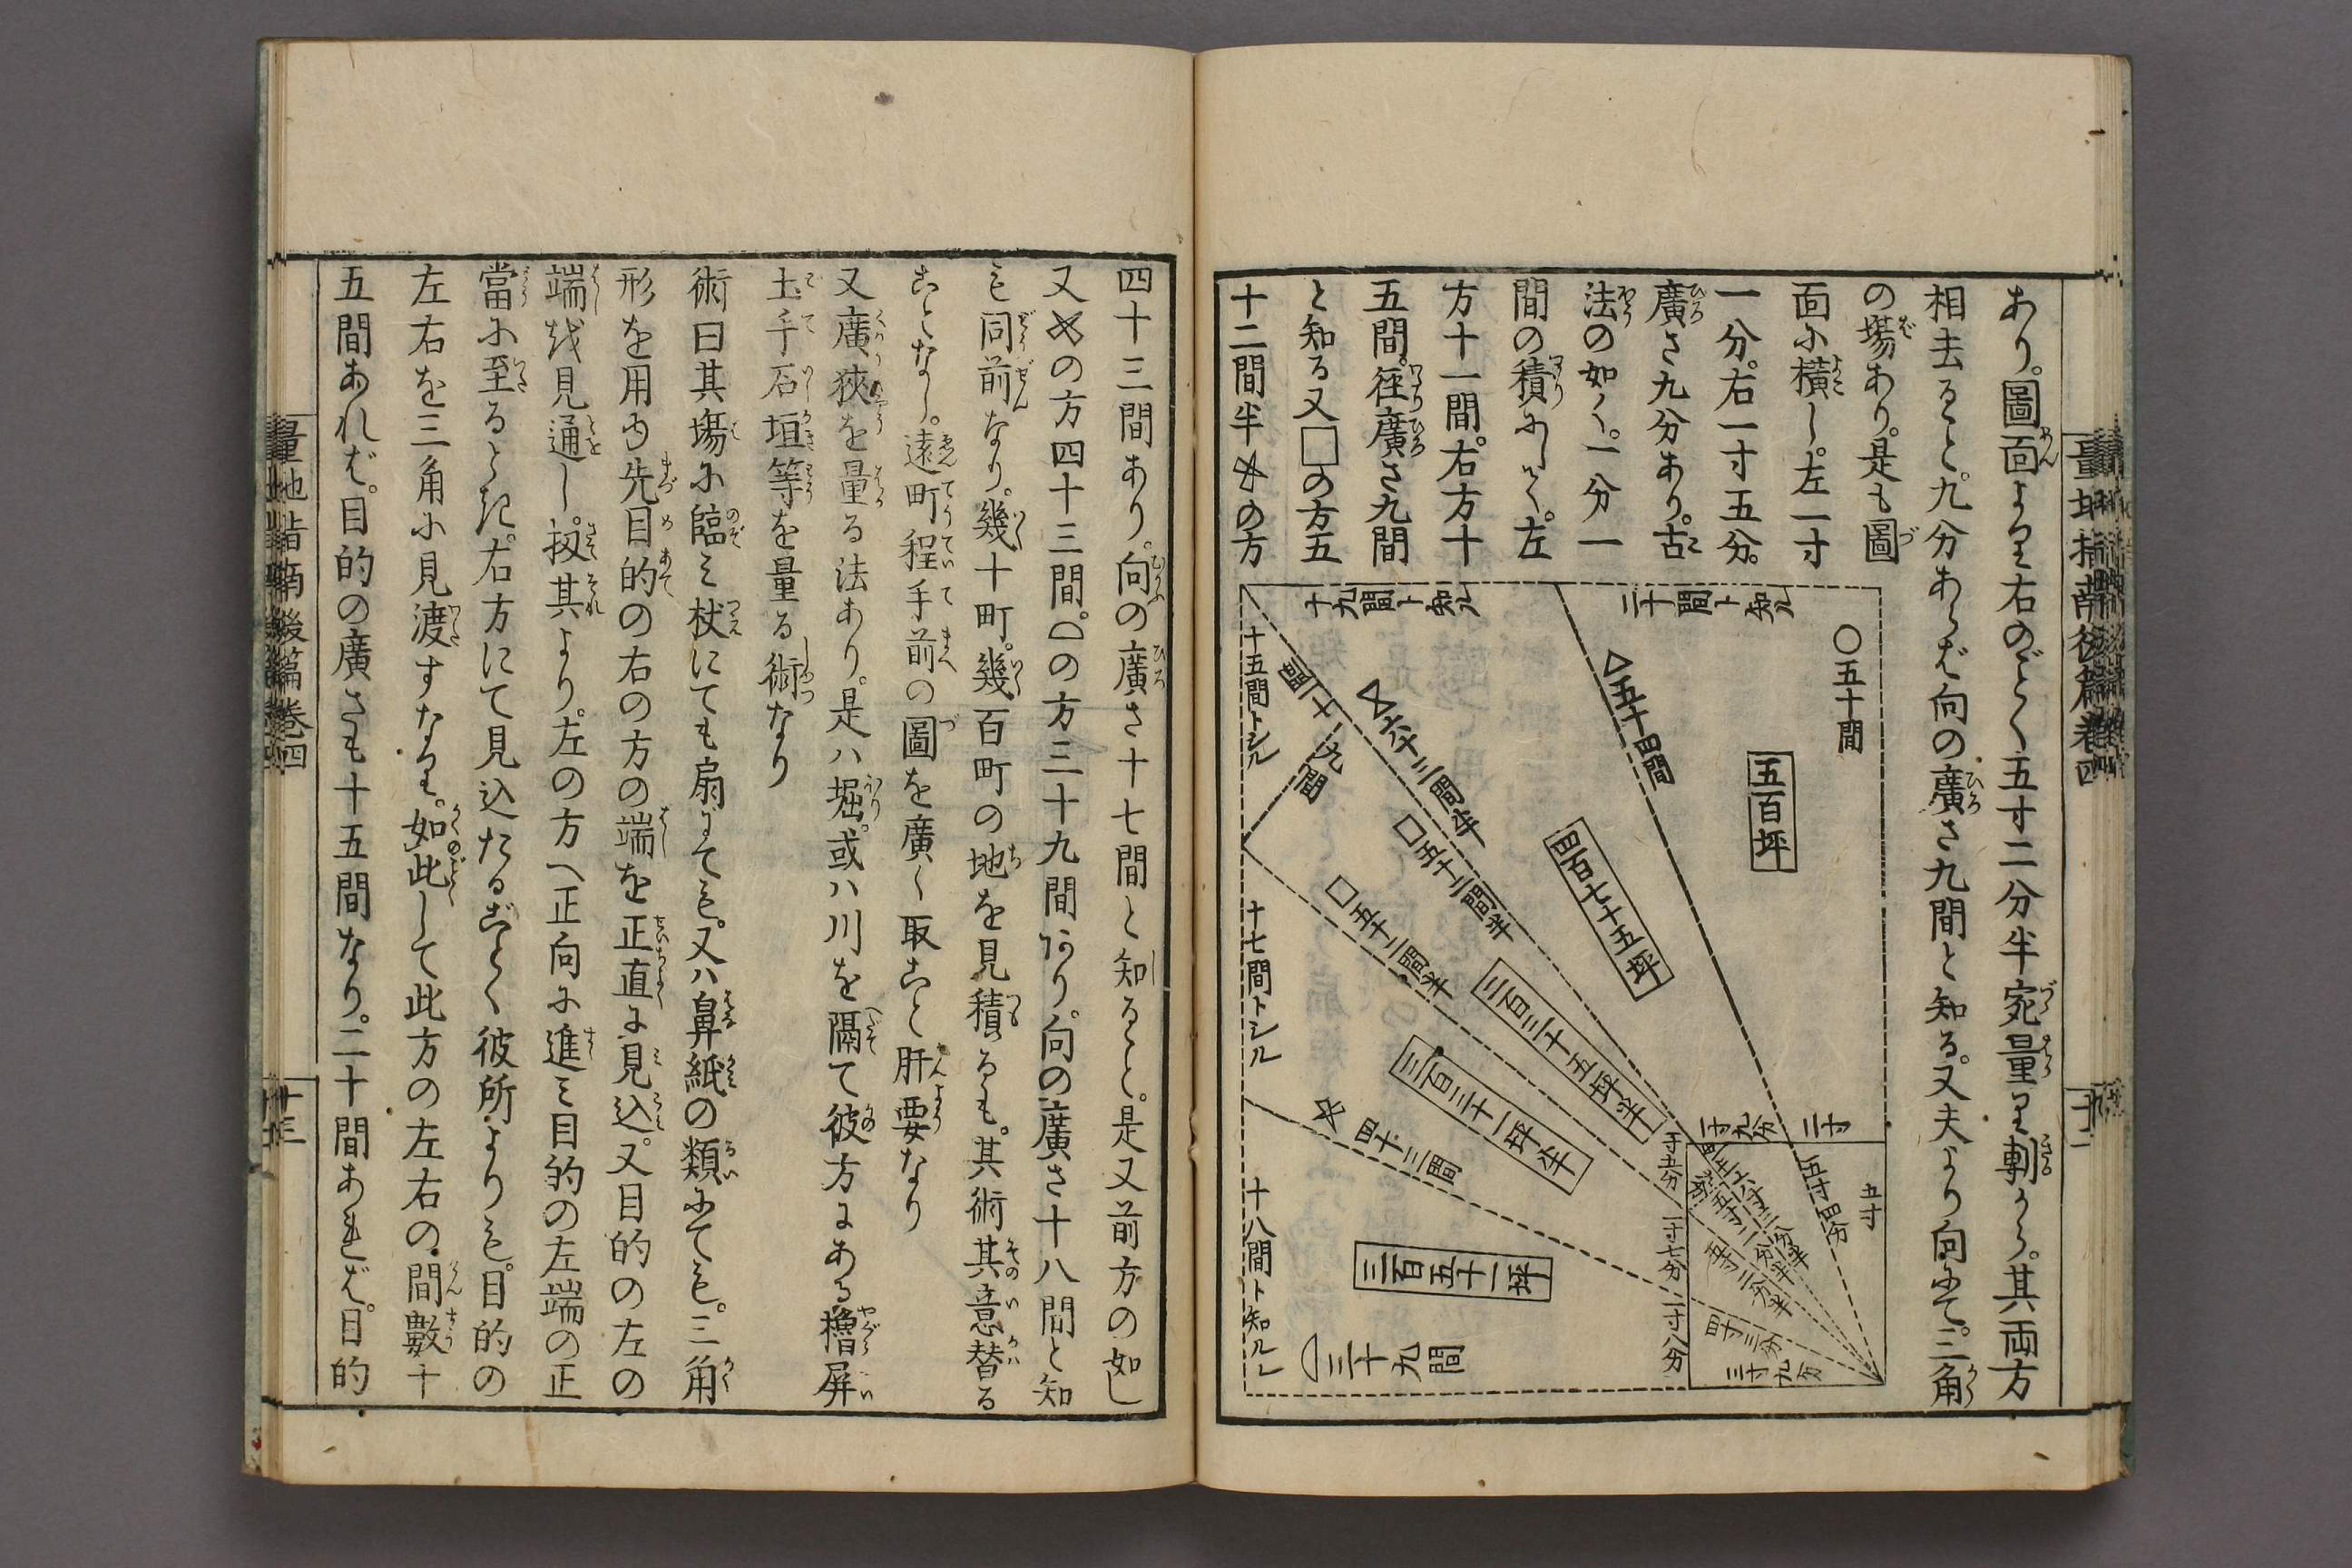 量地指南後篇巻四
あり。圖面より右のごとく五寸二分半宛量り剰から。其両方
相去ること。九分あらば向の廣さ九間と知る。又夫より向にて。三角
の塲あり。是も圖
面に横し。左一寸
一分。右一寸五分。
廣さ九分あり。古
法の如く。一分一
間の積にして。左
方十一間。右方十
五間。径廣さ九間
と知る又□の方五
十二間半の方
二十間ト知ル
十九間ト知ル
○五十間
五百坪
△五十四間
四百七十五坪
六十三間半
□五十二間半
三百三十五坪半
□五十二間半
三百三十一坪半
四十三間
三百五十一坪
三十九間
十五間トシル
十一間
九間
十七間トシル
十八間ト知ルレ
二寸
一寸九分
五寸
五寸四分
一寸五分
一寸七分
一寸八分
六寸三分半
五寸二分半
五寸二分半
四寸三分
三寸九分
四十三間あり。向の廣さ十七間と知ると。是又前方の如し
又の方四十三間。の方三十九間あり。向の廣さ十八間と知
も同前なり。幾十町。幾百町の地を見積るも。其術其意替る
ことなし。遠町程手前の圖を廣く取こと肝要なり
又廣狹を量る法あり。是ハ堀。或ハ川を隔て彼方にある櫓屏
土手石垣等を量る術なり
術曰其塲に臨ミ杖にても扇にても。又ハ鼻紙の類にても。三角
形を用ゆ先目的の右の方の端を正直に見込。又目的の左の
端を見通し。扨其より。左の方へ正向に進ミ目的の左端の正
當に至るとき。右方にて見込たるごとく彼所よりも。目的の
左右を三角に見渡すなり。如此して此方の左右の間數十
五間あれば。目的の廣さも十五間なり。二十間あれば。目的
量地指南後篇巻四
十三